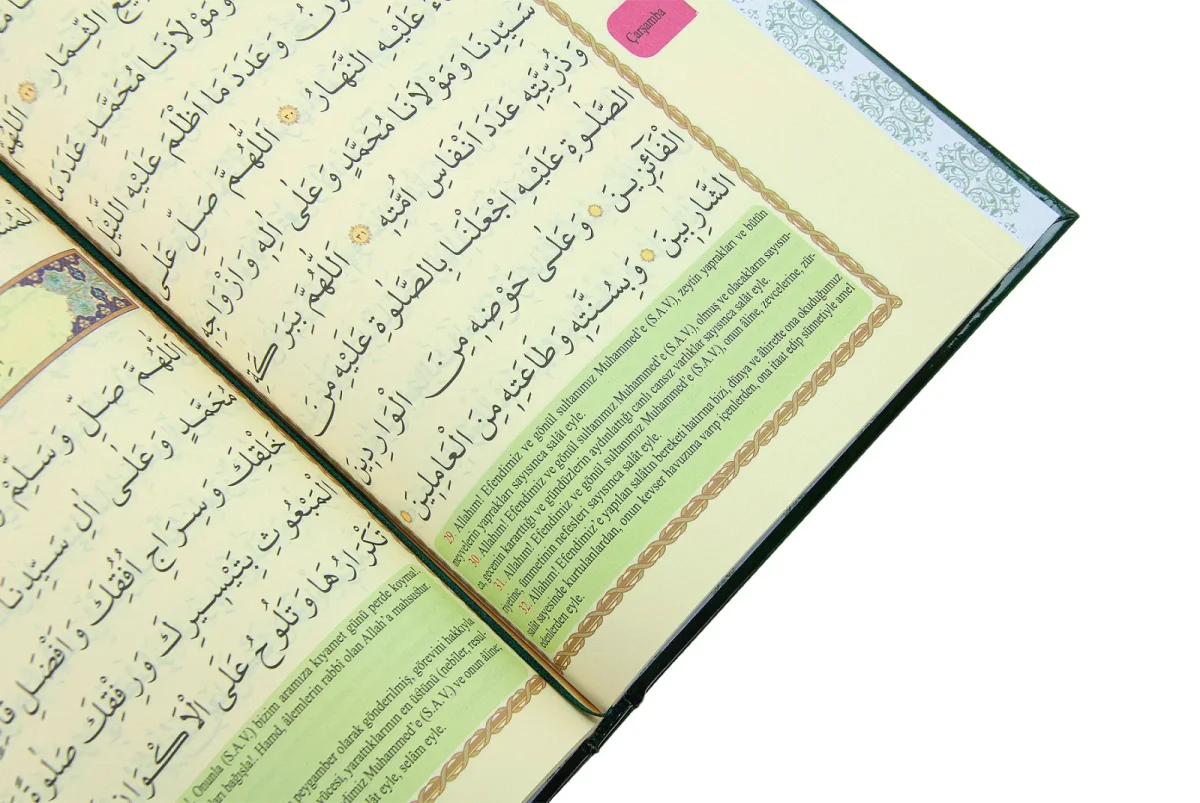 Çarşamba
يعَ الثِّمَارِ ٢٩ اَللّٰهُمَّ
وَمَوْلَانَا مُحَمَّدٍ عَدَدَ مَا
وَعَدَدَ مَا اَظْلَمَ عَلَيْهِ اللَّيْلُ
عَلَيْهِ النَّهَارُ ٣٠ اَللّٰهُمَّ صَلِّ عَلٰى
سَيِّدِنَا وَمَوْلَانَا مُحَمَّدٍ وَعَلٰى اٰلِهِ وَاَزْوَاجِهِ
وَذُرِّيَّتِهِ عَدَدَ اَنْفَاسِ اُمَّتِهِ ٣١ اَللّٰهُمَّ بِبَرَكَةِ
الصَّلٰوةِ عَلَيْهِ اجْعَلْنَا بِالصَّلٰوةِ عَلَيْهِ مِنَ
الْفَائِزِينَ وَعَلٰى حَوْضِهِ مِنَ الْوَارِدِينَ
الشَّارِبِينَ وَبِسُنَّتِهِ وَطَاعَتِهِ مِنَ الْعَامِلِينَ
29. Allahım! Efendimiz ve gönül sultanımız Muhammed'e (S.A.V.), zeytin yaprakları ve bütün
meyvelerin yaprakları sayısınca salât eyle.
30. Allahım! Efendimiz ve gönül sultanımız Muhammed'e (S.A.V.), olmuş ve olacakların sayısın-
ca, gecenin kararttığı ve gündüzlerin aydınlattığı canlı cansız varlıklar sayısınca salât eyle.
31. Allahım! Efendimiz ve gönül sultanımız Muhammed'e (S.A.V.), onun âline, zevcelerine, zür-
riyetine, ümmetinin nefesleri sayısınca salât eyle.
32. Allahım! Efendimiz'e yapılan salâtın bereketi hatırına bizi, dünya ve âhirette ona okuduğumuz
salât sayesinde kurtulanlardan, onun kevser havuzuna varıp içenlerden, ona itaat edip sünnetiyle amel
edenlerden eyle.
اَللّٰهُمَّ صَلِّ وَسَلِّمْ
مُحَمَّدٍ وَعَلٰى اٰلِ سَيِّدِنَا
خَلِقْتَكَ وَسِرَاجِ اُفُقِكَ وَاَفْضَلِ
الْمَبْعُوثِ بِتَيْسِيرِكَ وَرِفْقِكَ صَلٰوةً
تَكْرَارُهَا وَتَلُوحُ عَلَى الْاَكْوَانِ
Onunla (S.A.V.) bizim aramıza kıyamet günü perde koyma!..
bağışla!. Hamd, âlemlerin rabbi olan Allah'a mahsustur.
peygamber olarak gönderilmiş, görevini hakkıyla
yücesi, yarattıklarının en üstünü (nebiler, resul-
Muhammed'e (S.A.V.) ve onun âline,
salât eyle, selâm eyle.